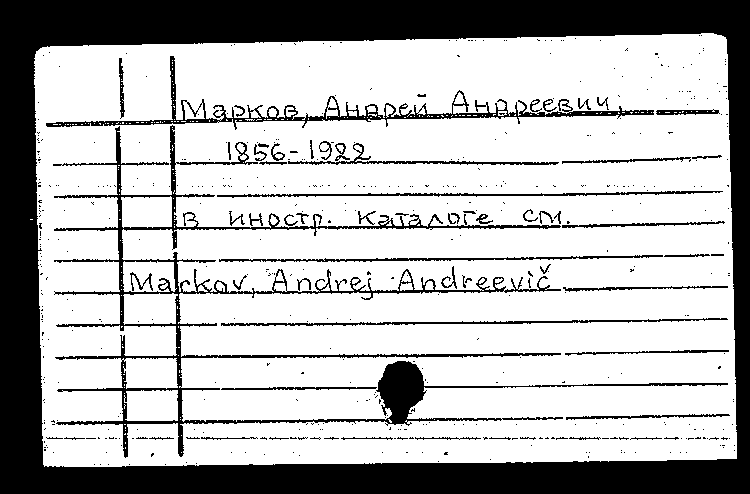 Марков, Андрей Андреевич,
1856-1922
в иностр. каталоге см.
Markov, Andrej Andreevič